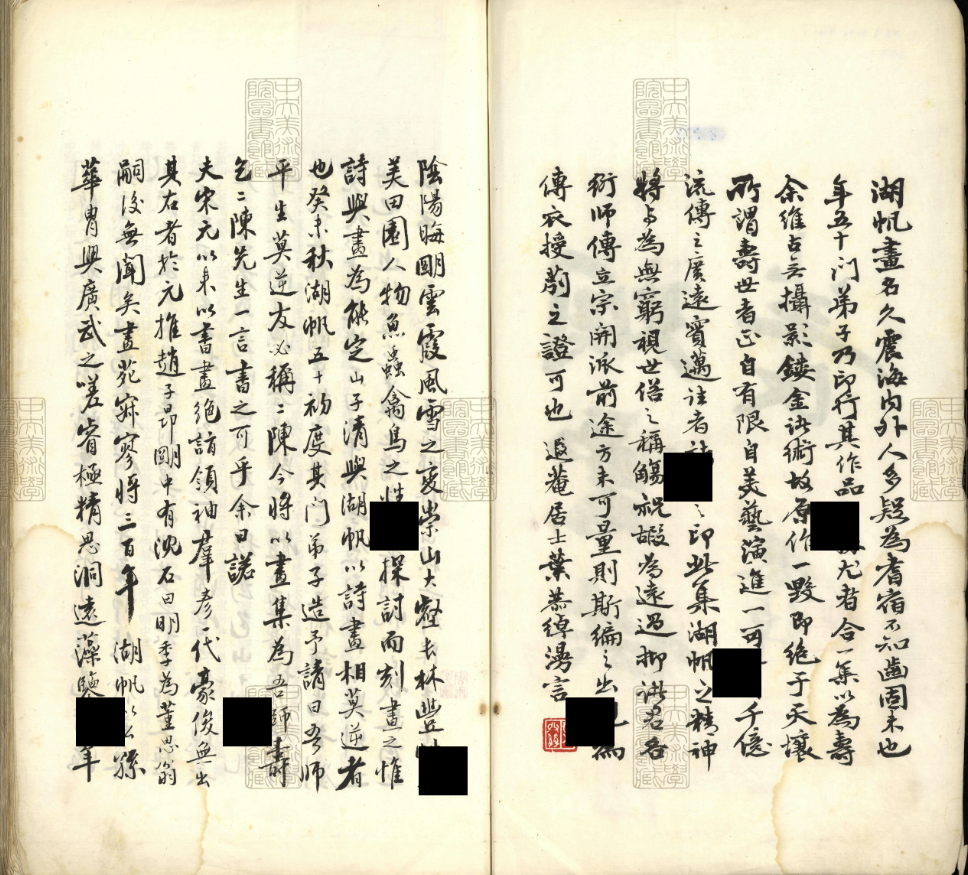 湖帆畫名久震海內外人多疑為耆宿不知齒固未也
年五十门弟子乃印行其作品尤者合一集以為壽
余維古無攝影鋟金諸術故原作一毀即绝于天壤
所謂壽世者正自有限自美藝演進一可千億
流傳之廣遠實邁往者之印此集湖帆之精神
將與為無窮視世俗之稱觴祝嘏為遠過抑湖君名
衍師傳立宗開派前途方未可量則斯編之出為
傳衣授莂之證可也 遐菴居士葉恭綽漫言
陰陽晦明雲霞風雪之变崇山大壑長林豐
美田園人物魚蟲禽鳥之性探討而刻畫之惟
詩與畫為能定山子清與湖帆以詩畫相莫逆者
也癸未秋湖帆五十初度其门弟子造予請曰吾師
平生莫逆友必稱二陳今將以畫集為吾師壽
乞二陳先生一言書之可乎余曰諾
夫宋元以来以書畫绝詣領袖羣彥一代豪俊無出
其右者於元推趙子昂明中有沈石田明季為董思翁
嗣後無聞矣畫苑寂寥將三百年湖帆以孫
華胄興廣武之嗟睿極精思洞遠藻鑒年